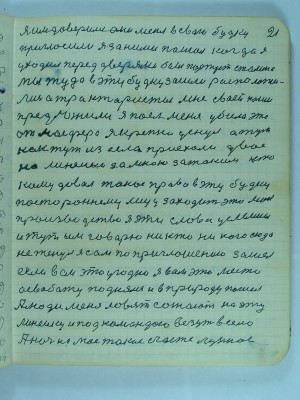 21
Я им доверился они меня в свою будку
пригласили я за ними пошол когда я
уходил перед дверями был портрет сталина
мы туда в эту будку зашли расположи-
лися трактористы мне своей каши
предложили я поел меня
от я крепко уснул а тут
как тут из села приехали двое
на линейке за мною заганяли кто
кому довал такое право в эту будку
постороннему лицу заходить это меня
производство я эти слова услышал
и тут им говорю никто ни кого сюда
не тянул я сам по приглашению зашол
если вам это угодно я вам это место
освабажу поднялся и в природу пошол
А люди меня ловят сожают на эту
линейку и под командою везут в село
А ночь на мое такое счастье лунное